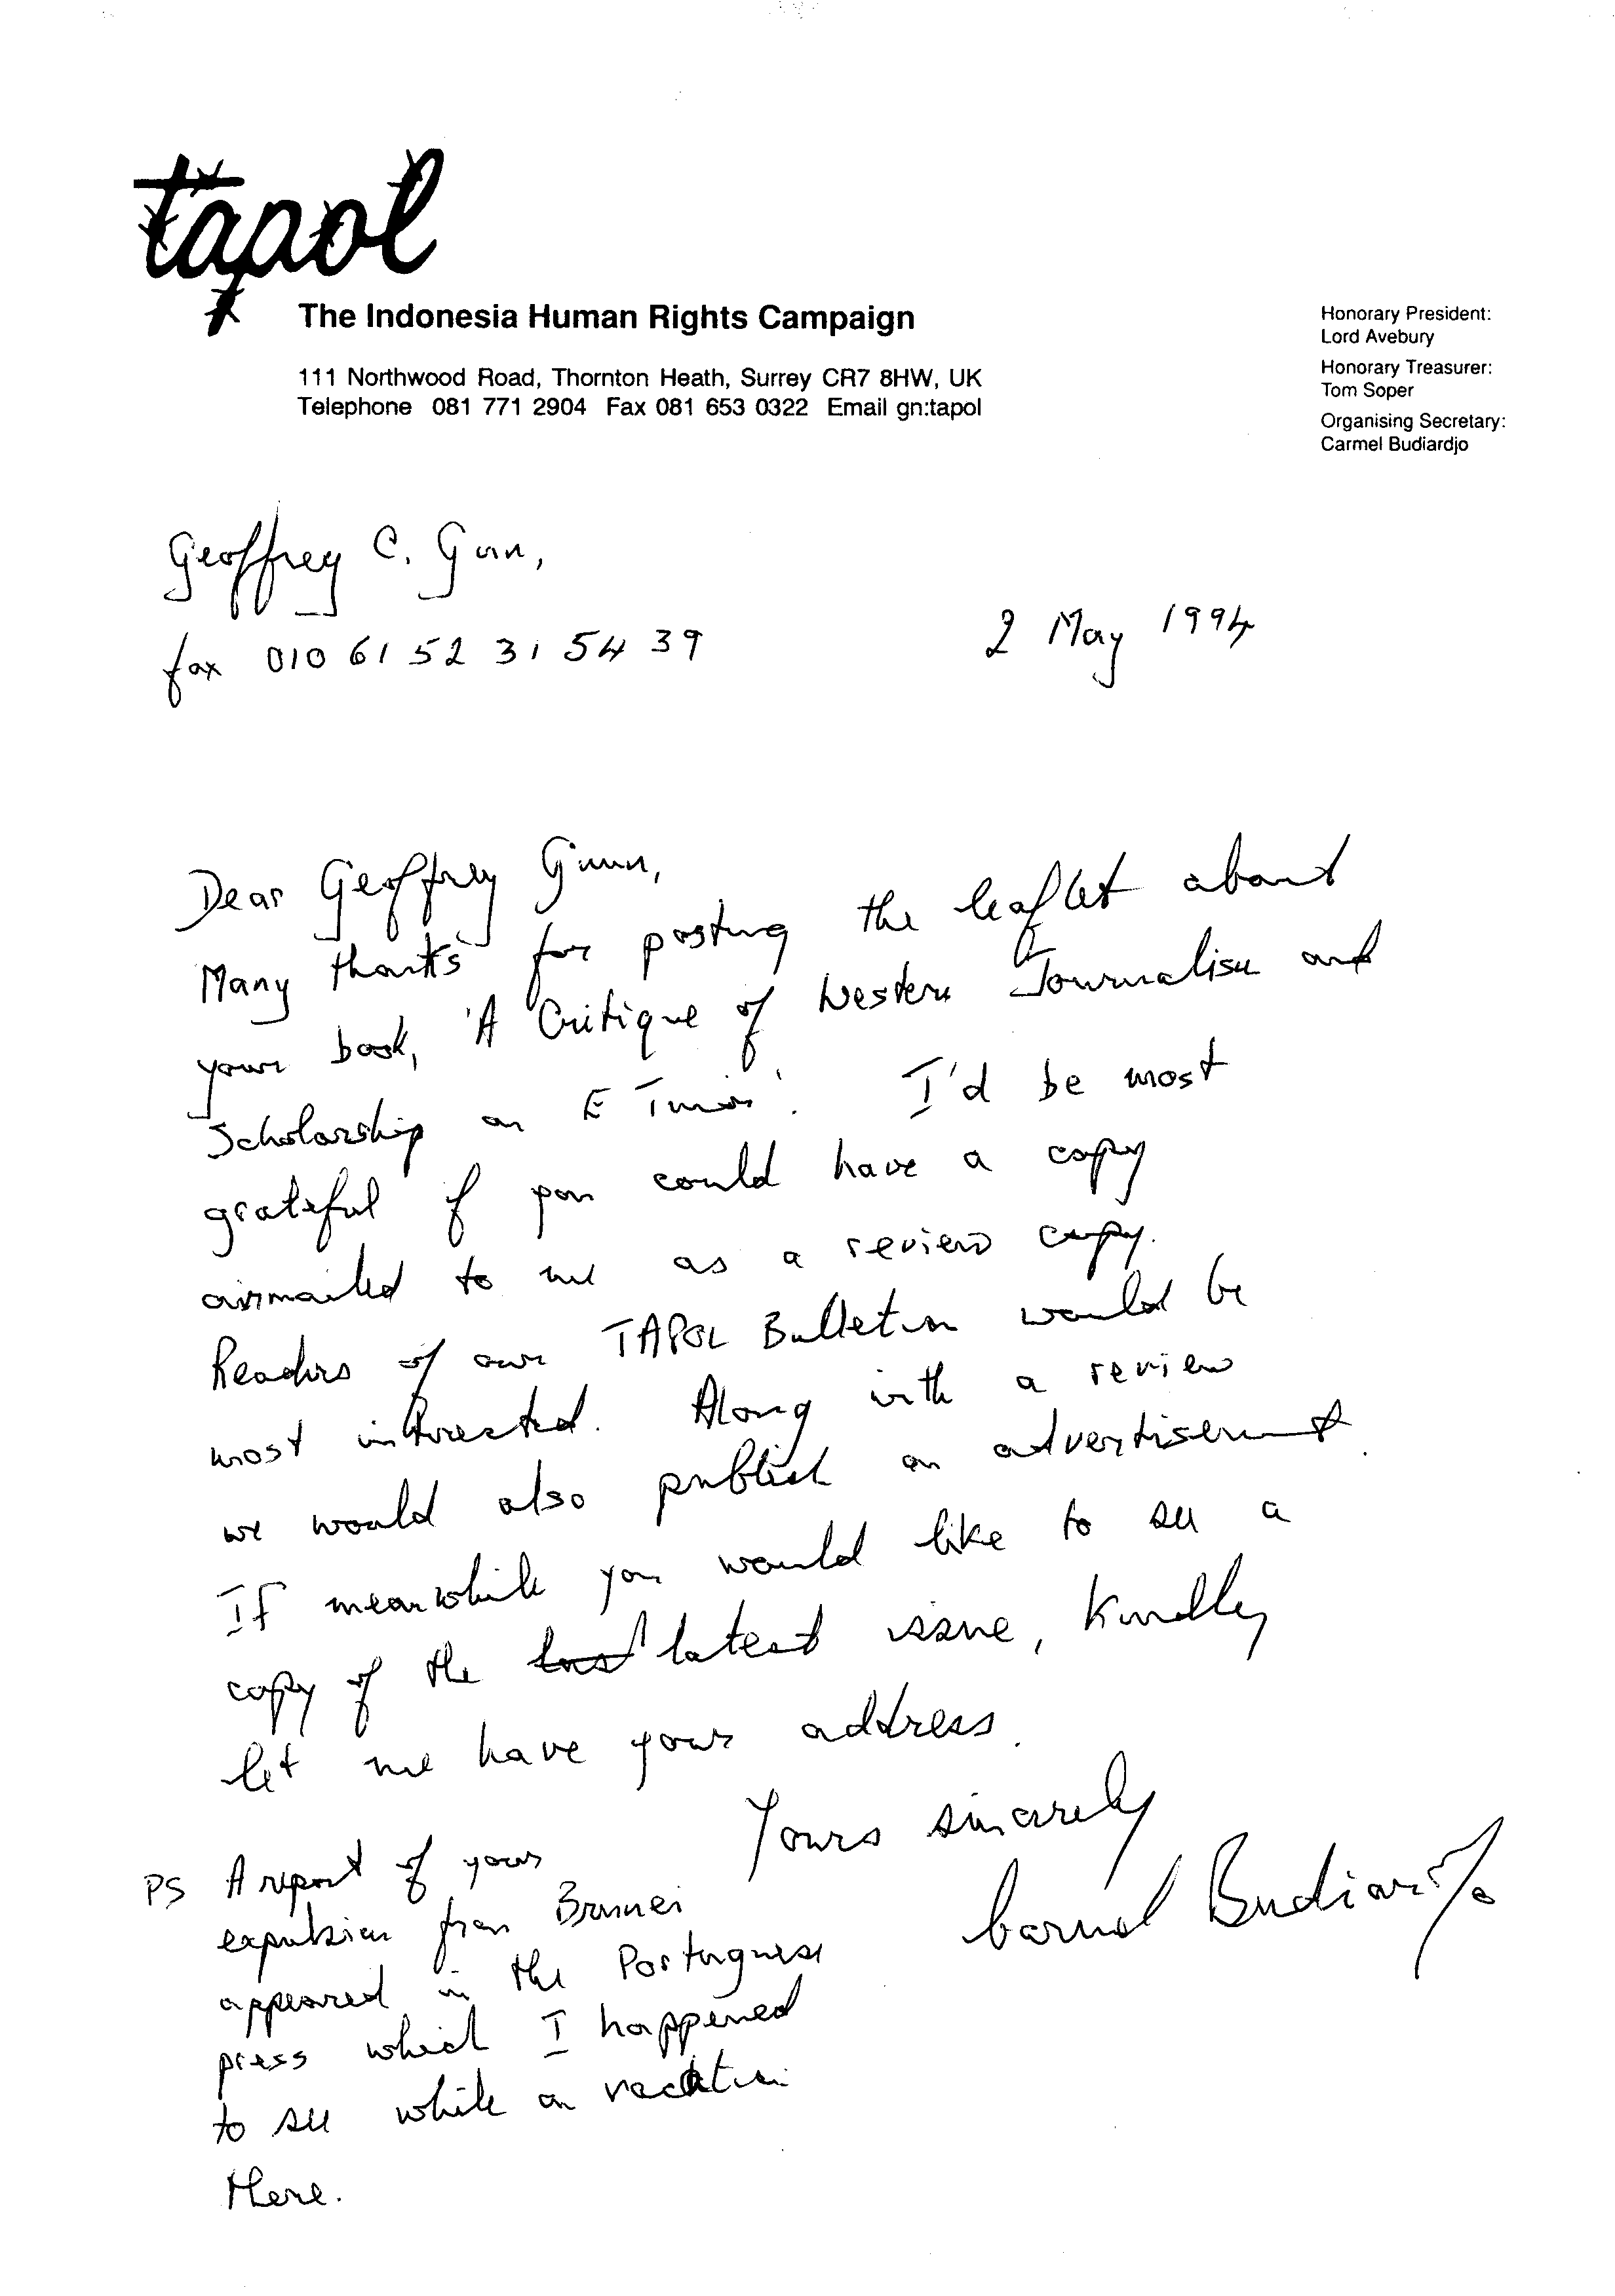 tapol
The Indonesia Human Rights Campaign
111 Northwood Road, Thornton Heath, Surrey CR7 8HW, UK
Telephone 081 771 2904 Fax 081 653 0322 Email gn:tapol
Honorary President:
Lord Avebury
Honorary Treasurer:
Tom Soper
Organising Secretary:
Carmel Budiardjo
Geoffrey C. Gunn,
fax 010 61 52 31 54 39
2 May 1994
Dear Geoffrey Gunn,
Many thanks for posting the leaflet about
your book, 'A Critique of Western Journalism and
Scholarship on E Timor'. I'd be most
grateful if you could have a copy
airmailed to me as a review copy.
Readers of our TAPOL Bulletin would be
most interested. Along with a review
we would also publish an advertisement.
If meanwhile you would like to see a
copy of the last latest issue, kindly
let me have your address.
Yours sincerely
Carmel Budiardjo
PS A report of your
expulsion from Brunei
appeared in the Portuguese
press which I happened
to see while on vacation
there.